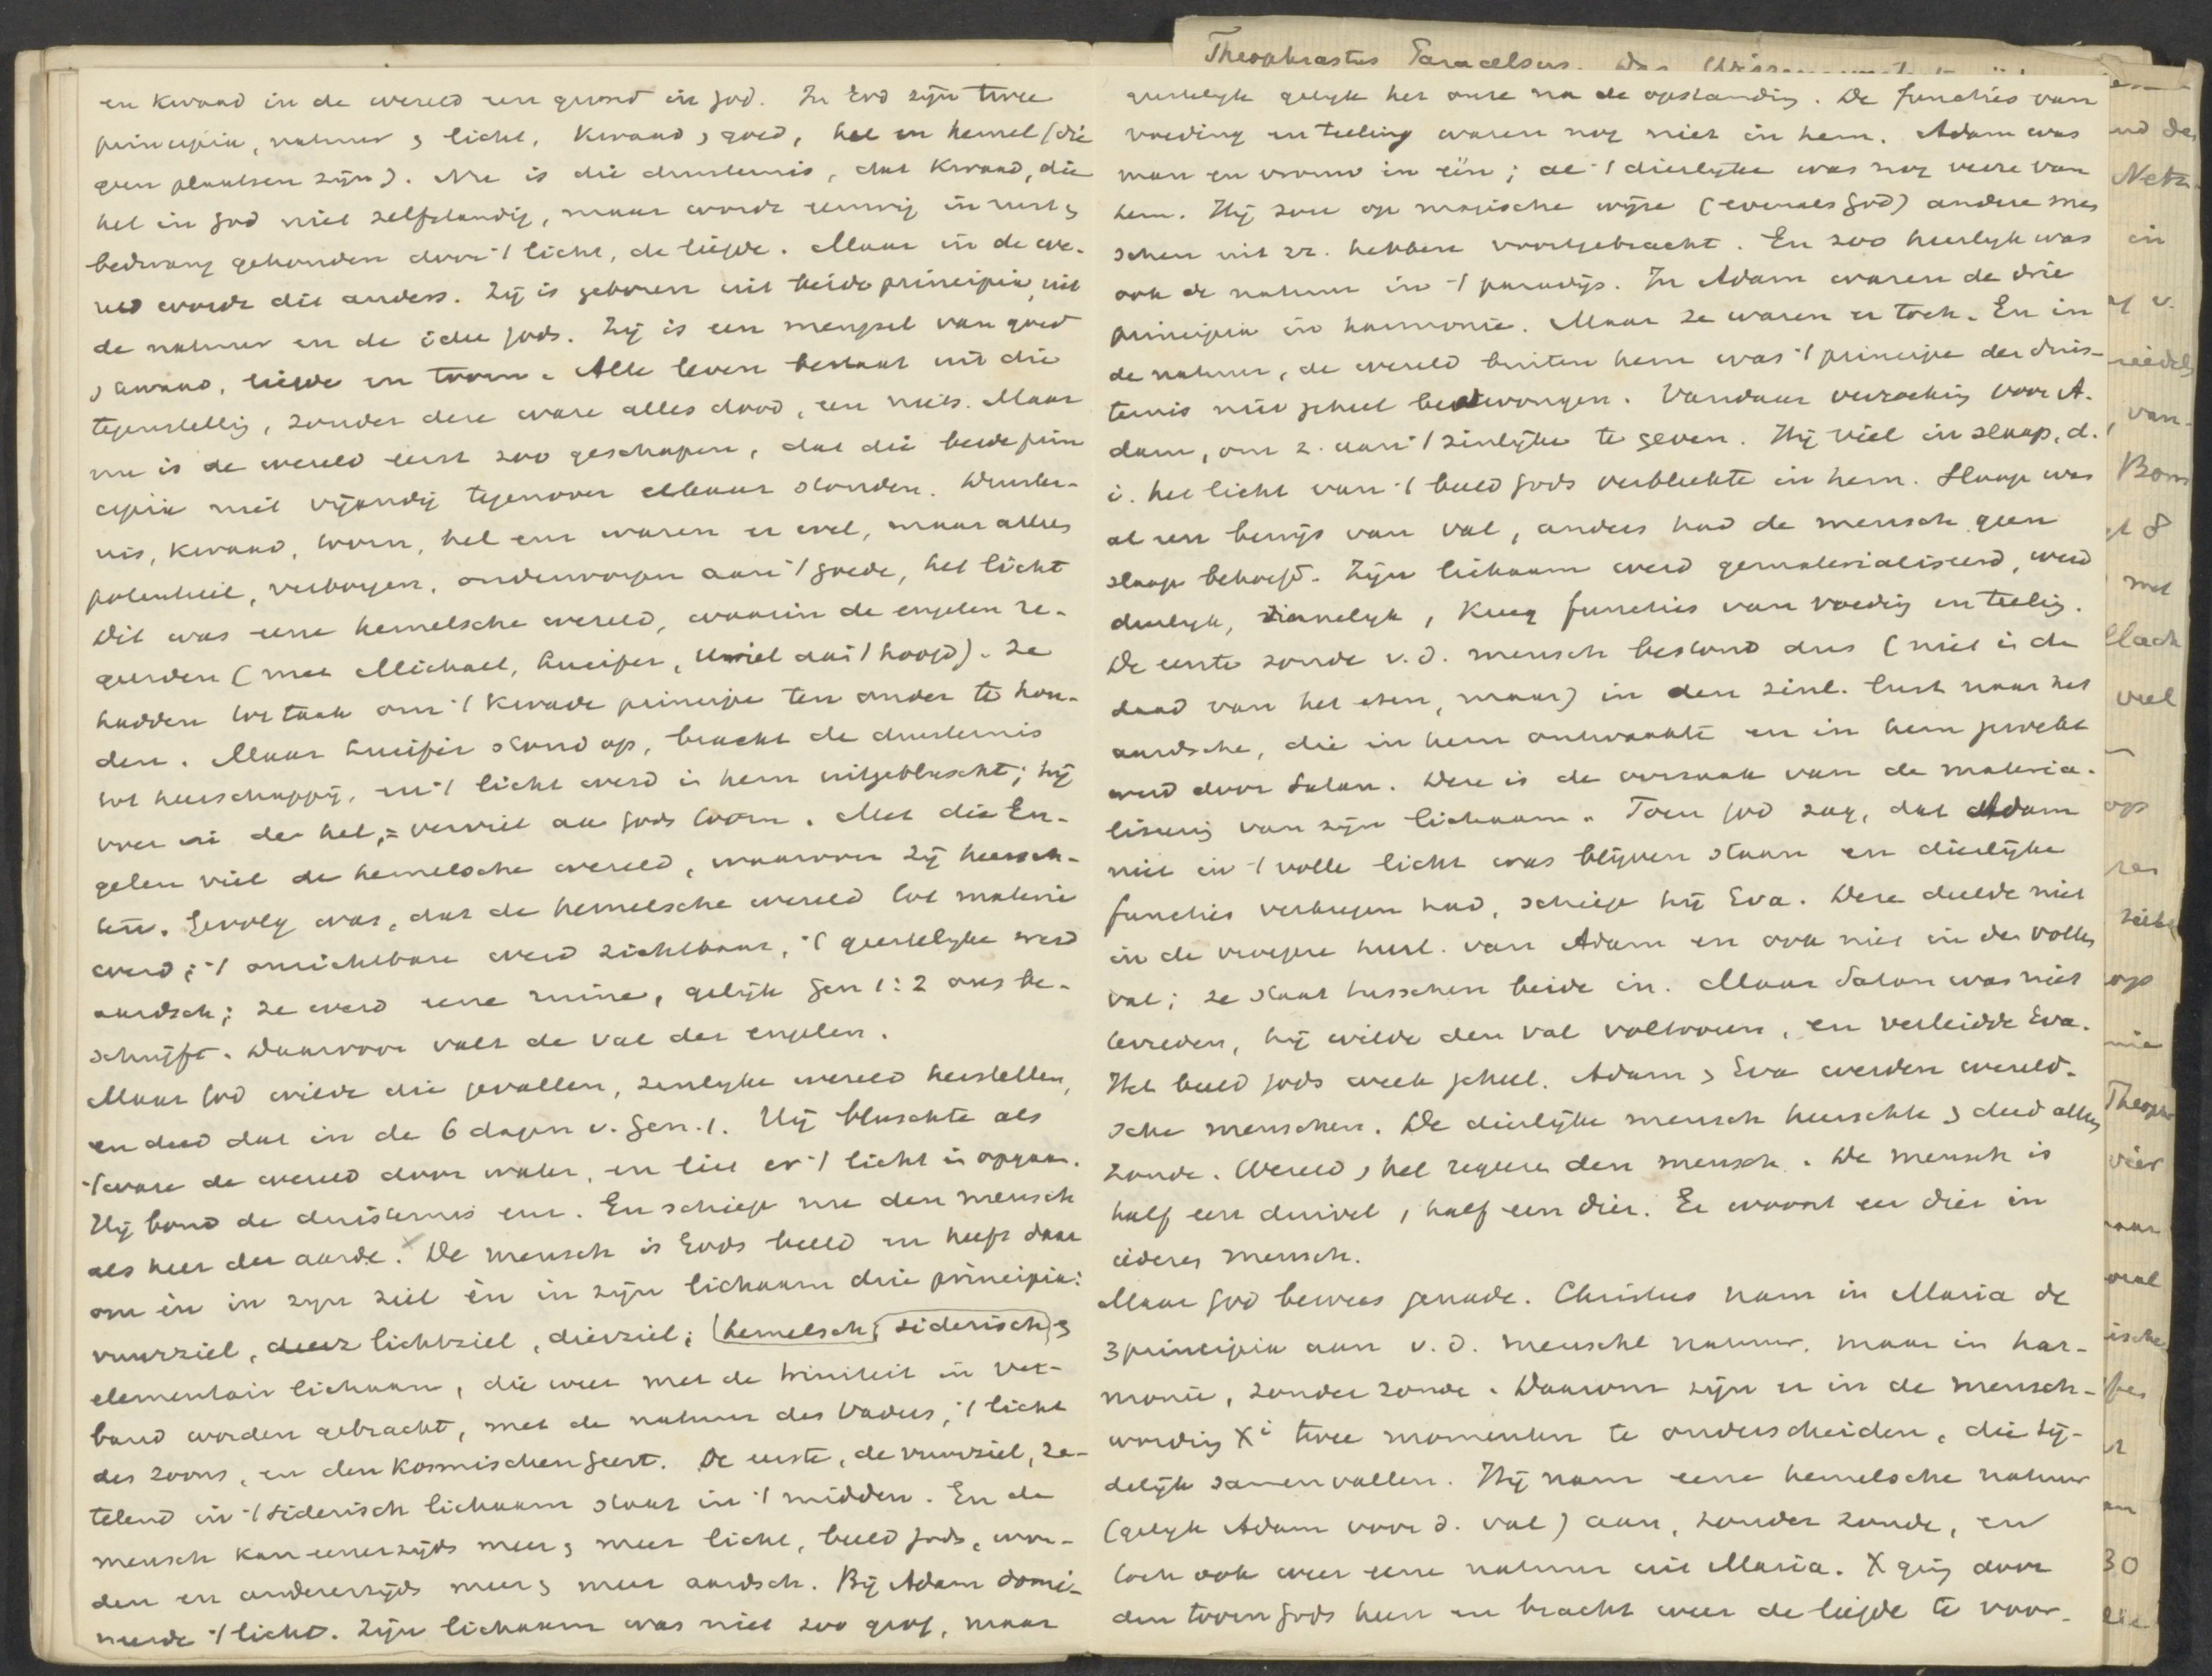 Theophrastus Paracelsus. Das
en kwaad in de wereld een grond in God. In God zijn twee
principia, natuur & licht, kwaad & goed, hel en hemel (die
geen plaatsen zijn). Nu is die duisternis, dat kwaad, die
hel in God niet zelfstandig, maar wordt eeuwig in rust &
bedwang gehouden door 't licht, de liefde. Maar in de we-
reld wordt dit anders. Zij is geboren uit beide principia, uit
de natuur en de idee Gods. Zij is een mengsel van goed
& kwaad, liefde en toorn. Alle leven bestaat uit die
tegenstellig, zonder deze ware alles dood, een niets. Maar
nu is de wereld eerst zoo geschapen, dat die beide prin
cipia niet vijandig tegenover elkaar stonden. Duister-
nis, kwaad, toorn, hel enz waren er wel, maar alles
potentieel, verborgen, onderworpen aan 't goede, het licht
Dit was eene hemelsche wereld, waarin de engelen re-
geerden (met Michael, Lucifer, Uriel aan 't hoofd). Ze
hadden tot taak om 't kwade principe ten onder te hou-
den. Maar Lucifer stond op, bracht de duisternis
tot heerschappij, en 't licht werd in hem uitgebluscht; hij
voer in de hel, = verviel aan Gods toorn. Met die En-
gelen viel de hemelsche wereld, waarover zij heersch-
ten. Gevolg was, dat de hemelsche wereld tot materie
werd; 't onzichtbare werd zichtbaar, 't geestelijke werd
aardsch; ze werd eene ruine, gelijk Gen 1:2 ons be-
schrijft. Daarvoor valt de val der engelen.
Maar God wilde die gevallen, zinlijke wereld herstellen,
en deed dat in de 6 dagen v. Gen. 1. Hij bluschte als
't ware de wereld door water, en liet er 't licht in opgaan.
Hij bond de duisternis enz. En schiep nu den mensch
als heer der aarde. De mensch is Gods beeld en heeft daar
om èn in zijn ziel èn in zijn lichaam drie principia:
vuurziel, lichtziel, dierziel; hemelsch, siderisch &
elementair lichaam, die weer met de triniteit in ver-
band worden gebracht, met de natuur des Vaders, 't licht
des Zoons, en den kosmischen geest. De eerste, de vuurziel, ze-
telend in 't siderisch lichaam staat in 't midden. En de
mensch kan eenerzijds meer & meer licht, beeld Gods, wor-
den en anderenzijds meer & meer aardsch. Bij Adam domi-
neerde 't licht. Zijn lichaam was niet zoo grof, maar
geestelijk gelijk het onze na de opstanding. De functies van
voeding en teeling waren nog niet in hem. Adam was
man en vrouw in één; al 't dierlijke was nog verre van
hem. Hij zou op magische wijze (evenals God) andere men
schen uit zz. hebben voortgebracht. En zoo heerlijk was
ook de natuur in 't paradijs. In Adam waren de drie
principia in harmonie. Maar ze waren er toch. En in
de natuur, de wereld buiten hem was 't principe der duis-
ternis niet geheel bedwongen. Vandaar verzoeking voor A-
dam, om z. aan 't zinlijke te geven. Hij viel in slaap, d.
i. het licht van 't beeld Gods verbleekte in hem. Slaap was
al een bewijs van val, anders had de mensch geen
slaap behoeft. Zijn lichaam werd gematerialiseerd, werd
dierlijk, zinnelijk, kreeg functies van voedig en teelig.
De eerste zonde v. d. mensch bestond dus (niet in de
daad van het eten, maar) in den zinl. lust naar het
aardsche, die in hem ontwaakte en in hem gewekt
werd door Satan. Deze is de oorzaak van de materia-
liseerig van zijn lichaam. Toen God zag, dat Adam
niet in 't volle licht was blijven staan en dierlijke
functies verkregen had, schiep hij Eva. Deze deelde niet
in de vroegere heerl. van Adam en ook niet in de vollen
val; ze staat tusschen beide in. Maar Satan was niet
tevreden, hij wilde den val voltooien, en verleidde Eva.
Het beeld Gods week geheel. Adam & Eva werden wereld-
sche menschen. De dierlijke mensch heerschte & deed alles
zonde. Wereld & hel regeeren den mensch. De mensch is
half een duivel, half een dier. Er woont een dier in
iederen mensch.
Maar God bewees genade. Christus nam in Maria de
3 principia aan v. d. menschl natuur, maar in har-
monie, zonder zonde. Daarom zijn er in de mensch-
wordig Xi twee momenten te onderscheiden, die tij-
delijk samenvallen. Hij nam eene hemelsche natuur
(gelijk Adam voor d. val) aan, zonder zonde, en
toch ook weer eene natuur uit Maria. X ging door
den toorn Gods heen en bracht weer de liefde te voor-